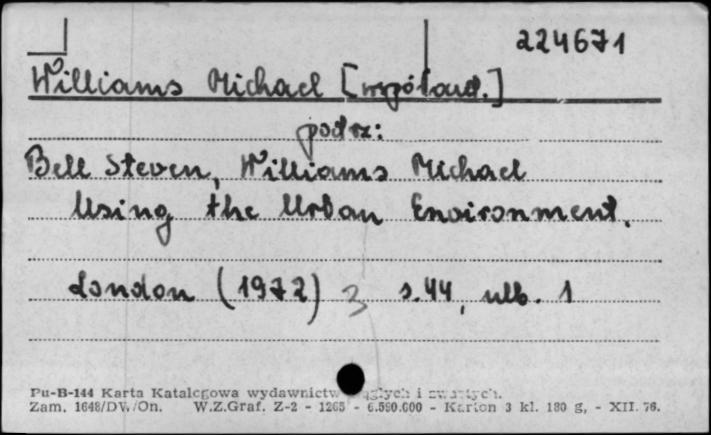 224671
Williams Michael [współaut.]
podrz:
Bell Steven, Williams Michael
Using the Urban Environment.
London (1972) 3 s.44, nlb. 1
Pu-B-144 Karta Katalogowa wydawnictw ciągłych i zwartych.
Zam. 1648/DV./On. W.Z.Graf. Z-2 - 1265 - 6.590.000 - Karton 3 kl. 180 g, - XII. 76.